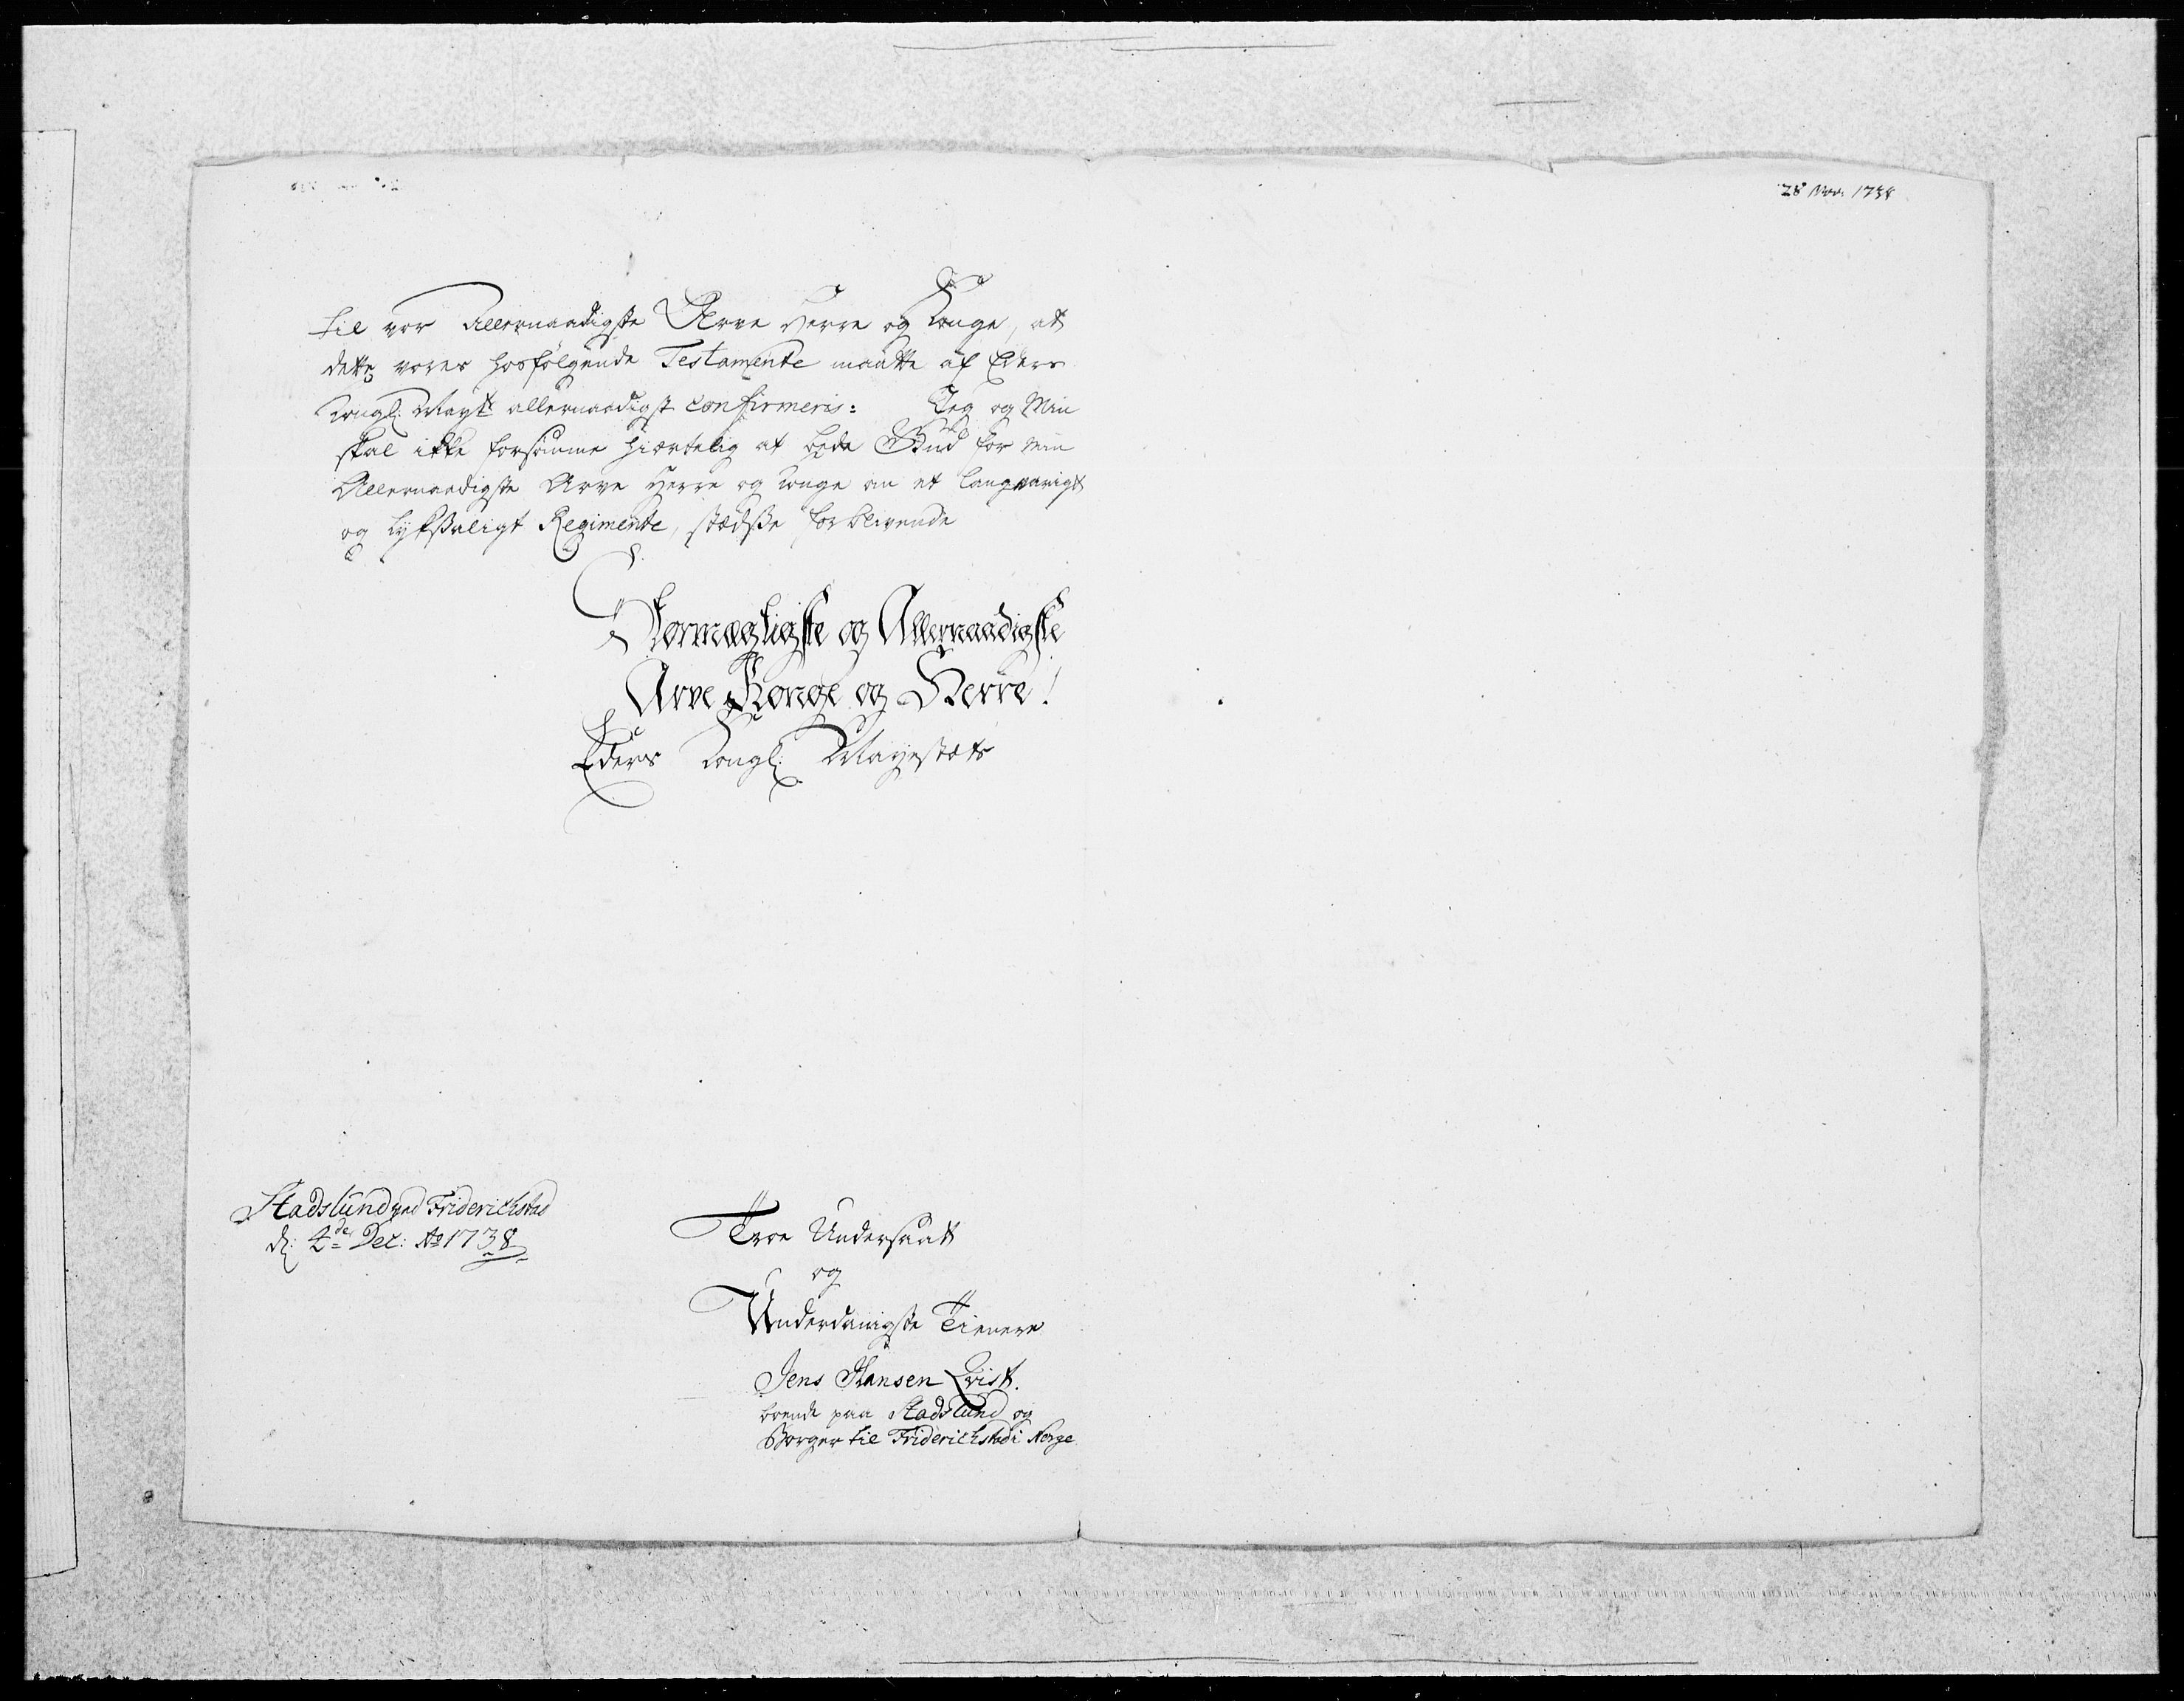 28 Nov. 1738
til vor Allernaadigste Arve Herre og Konge, at
dette vores hosfølgende Testamente maatte af Eders
Kongl: Mayt: allernaadigst confirmeris: Jeg og Min
skal ikke forsømme hiærtelig at bede Gud for min
Allernaadigste Arve Herre og Konge om et langvarigt
og lyksaligt Regimente, stædse forblivende
Stormægtigste og Allernaadigste
Arve Konge og Herre!
Eders Kongl: Mayestæts
Stadslund ved Friderichstad
d: 4de Dec: Ao 1738
Troe Undersaatt
og
Underdanigste Tienere
Jens Hansen Qvist.
boende paa Stadslund og
Borger til Friderichstad i Norge